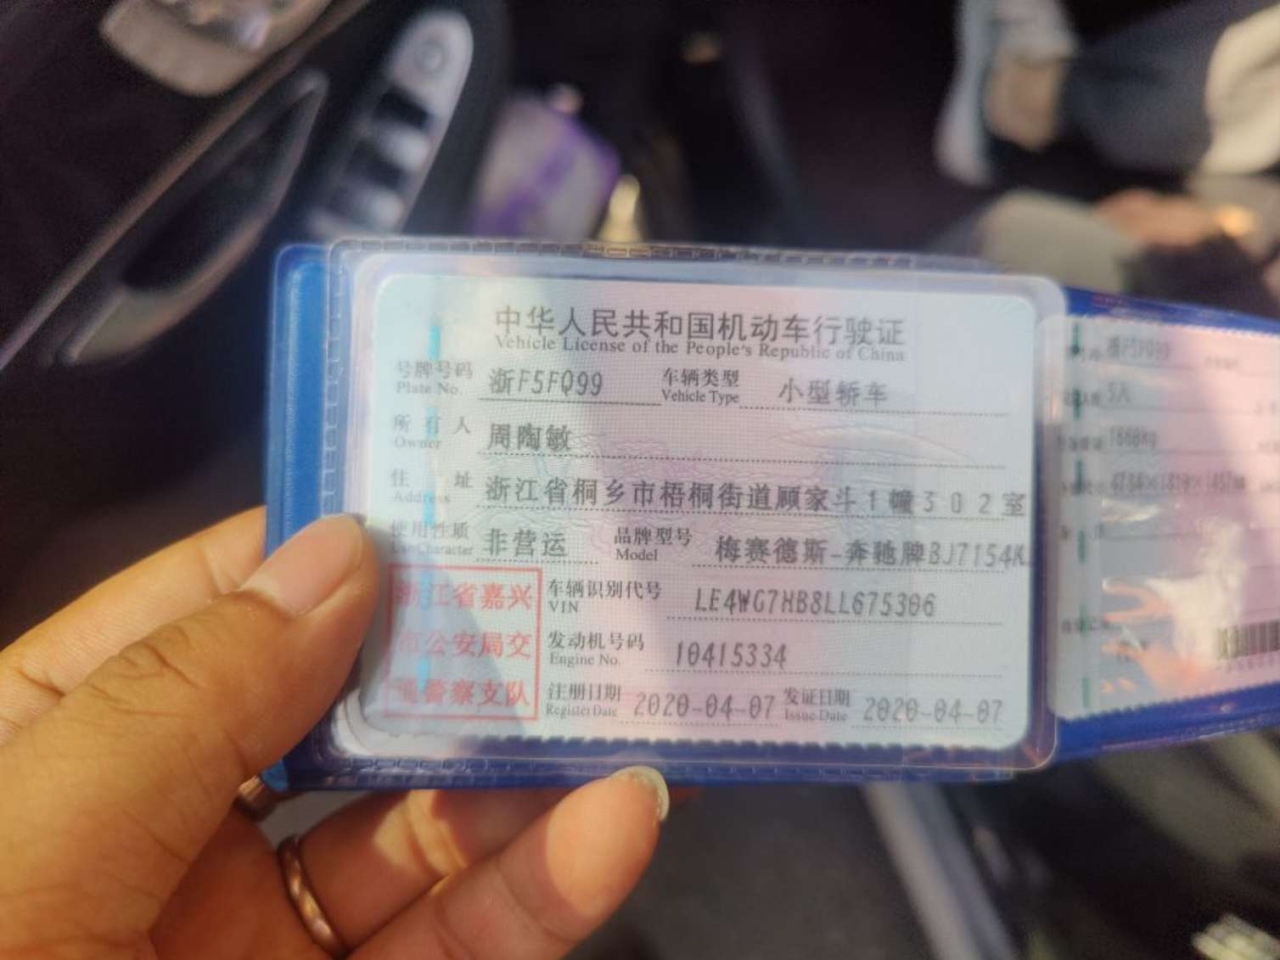 中华人民共和国机动车行驶证
Vehicle License of the People's Republic of China
号牌号码 浙F5FQ99 车辆类型 小型轿车
Plate No. Vehicle Type
所有人 周陶敏
Owner
住址 浙江省桐乡市梧桐街道顾家斗1幢302室
Address
使用性质 非营运 品牌型号 梅赛德斯-奔驰牌BJ7154
Use Character Model
浙江省嘉兴
市公安局交
通警察支队
车辆识别代号 LE4WG7HB8LL675306
VIN
发动机号码 10415334
Engine No.
注册日期 2020-04-07 发证日期 2020-04-07
Register Date Issue Date
5人
1668kg